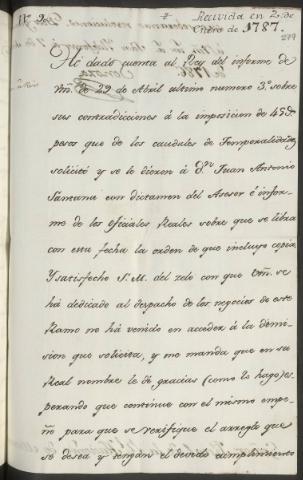 N. 2.
Recivida en 2 de
Enero de 1787.
279
He dado cuenta al Rey del informe de
Vm. de 29 de Abril ultimo numero 3.º sobre
sus contradicciones á la imposicion de 45 @.
pesos que de los caudales de Temporalidades
solicitó y se le dieron á D.n Juan Antonio
Santana con dictamen del Asesor é infor-
me de los oficiales Reales sobre que se libra
con esta fecha la orden de que incluyo copia
Y satisfecho S. M. del zelo con que Vm. se
há dedicado al despacho de los negocios de este
Ramo no há venido en acceder á la demi-
sion que solicita, y me manda que en su
Real nombre le dé gracias (como lo hago) es-
perando que continue con el mismo empe-
ño para que se verifique el arreglo que
se desea y tengan el devido cumplimiento